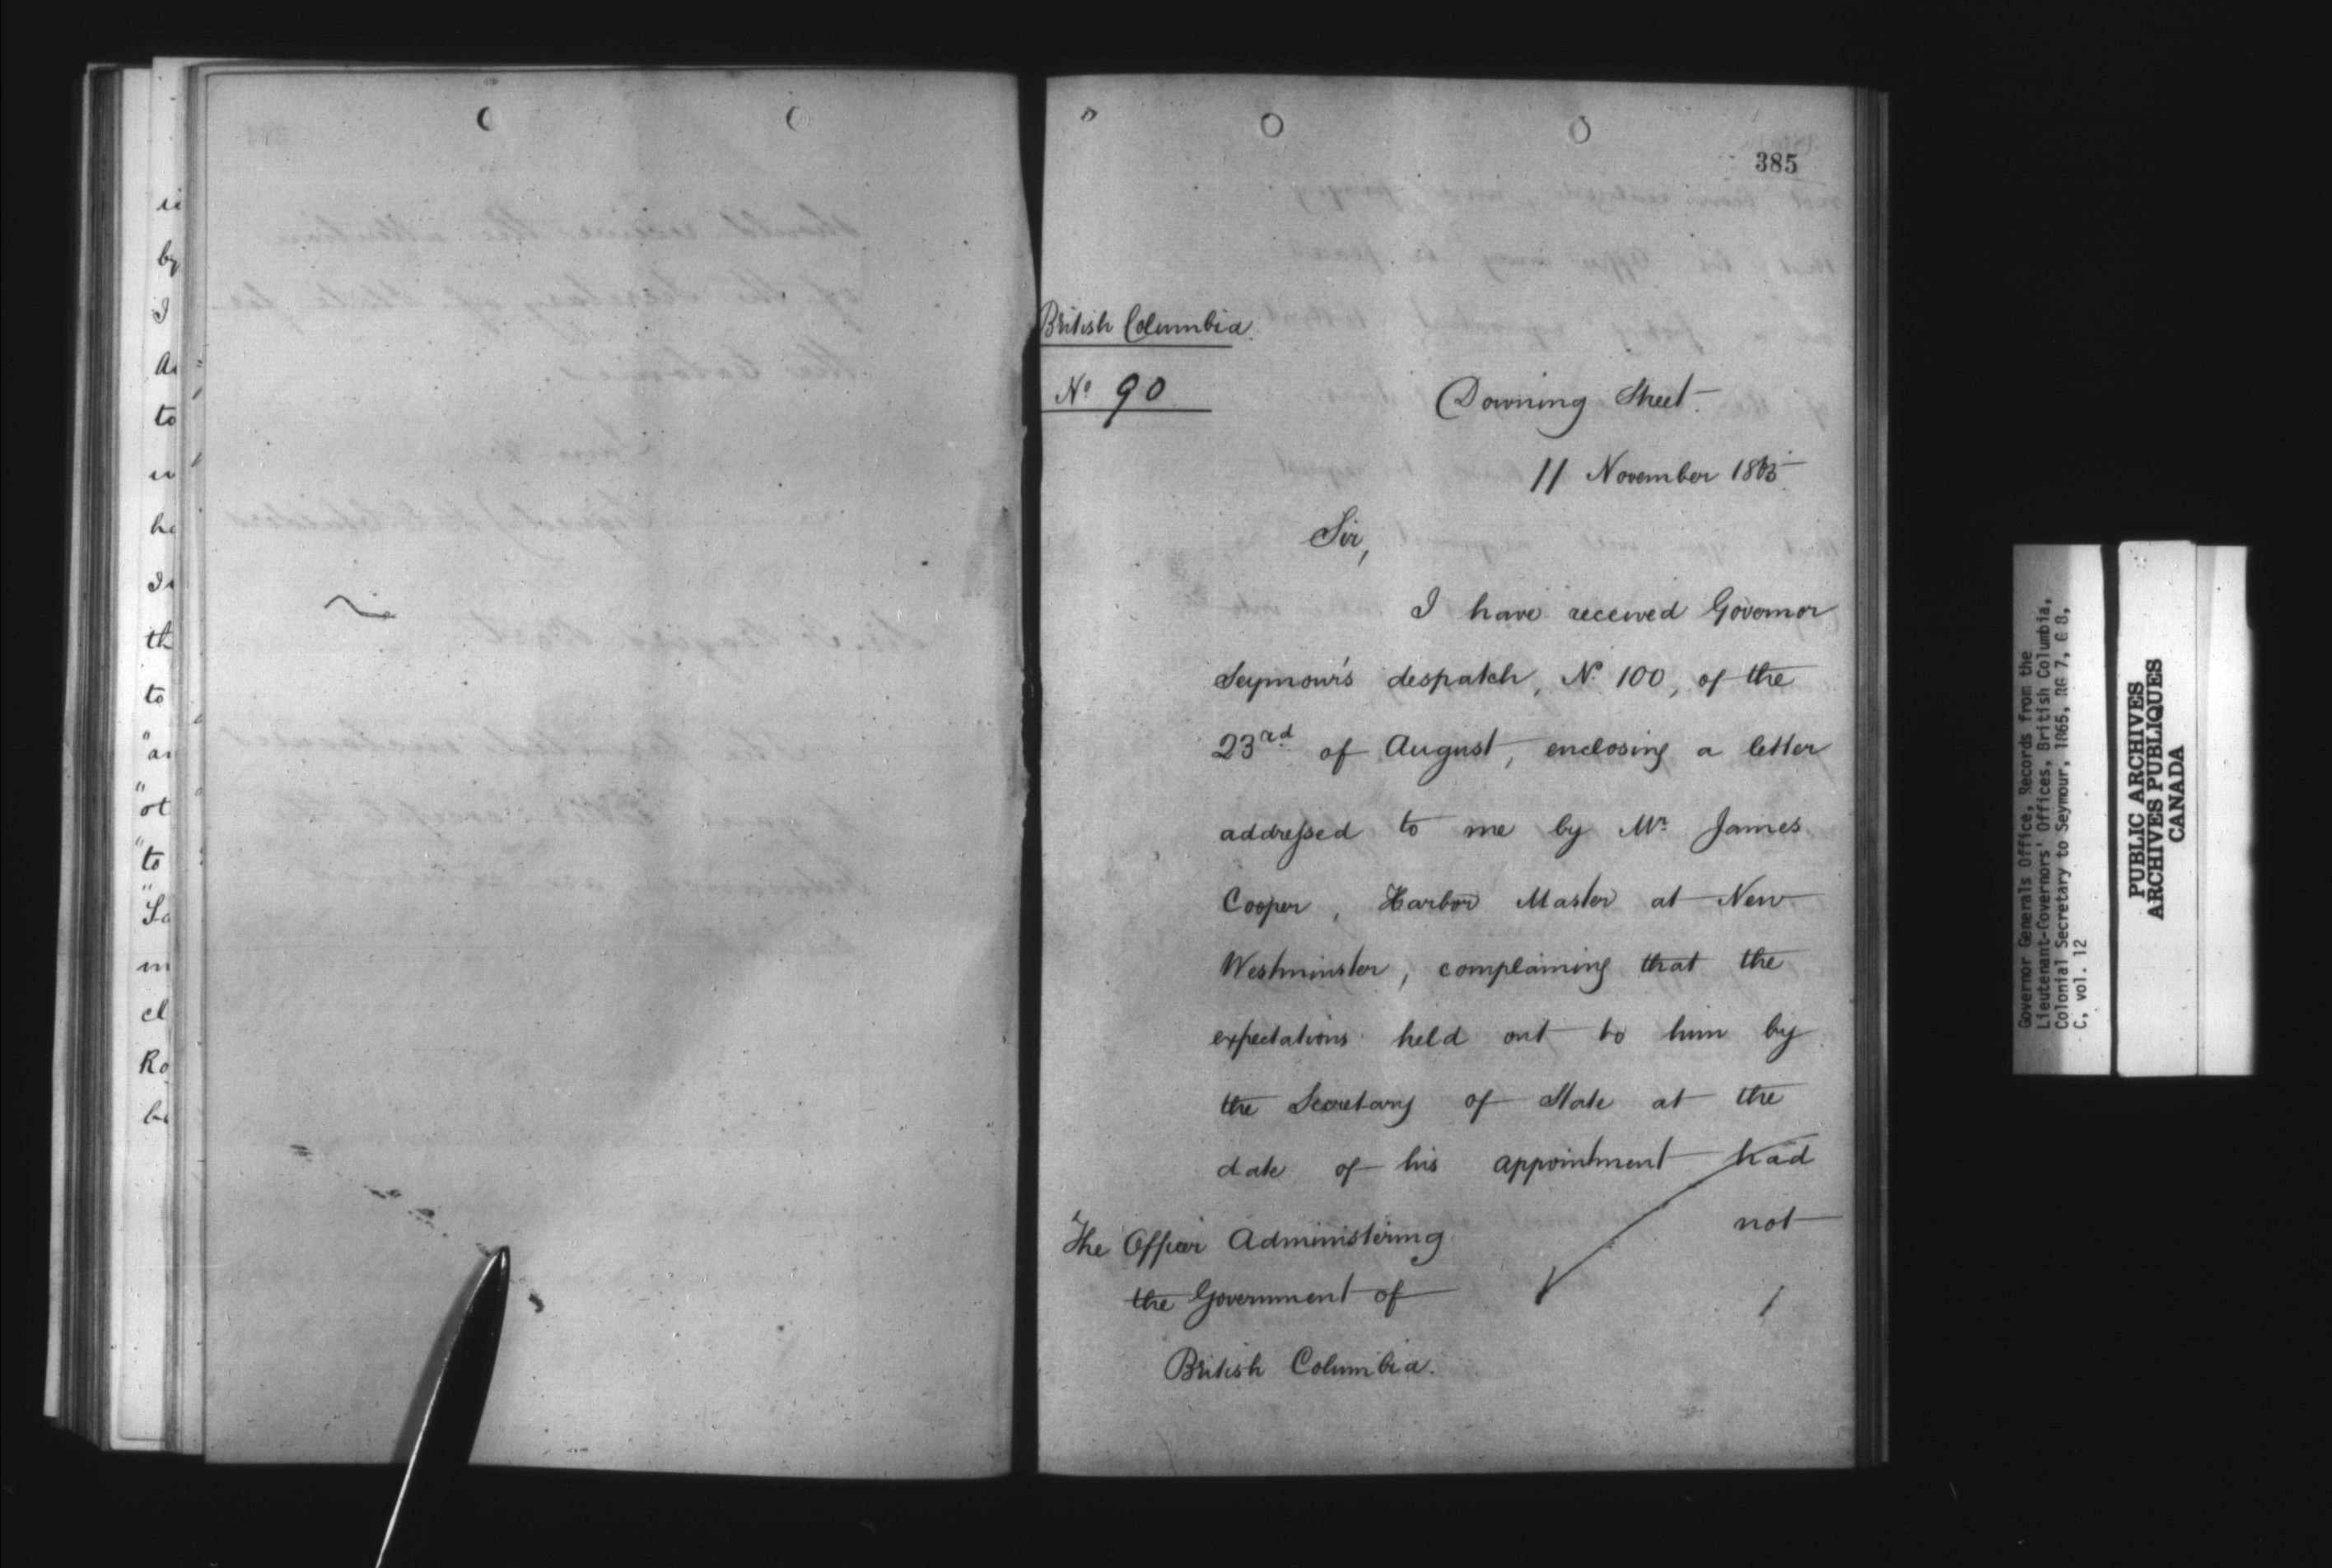 385
British Columbia.
No 90
Downing Street.
11 November 1865.
Sir,
I have received Governor
Seymour's despatch, No. 100, of the
23rd of August, enclosing a letter
addressed to me by Mr James
Cooper, Harbor Master at New
Westminster, complaining that the
expectations held out to him by
the Secretary of State at the
date of his appointment had
not
The Officer Administering
the Government of
British Columbia.
ii
by
I
to
"ot
"to
Ro
Governor Generals Office, Records from the
Lieutenant-Governors' Offices, British Columbia,
Colonial Secretary to Seymour, 1865, RG 7, G 8,
C, vol. 12
PUBLIC ARCHIVES
ARCHIVES PUBLIQUES
CANADA